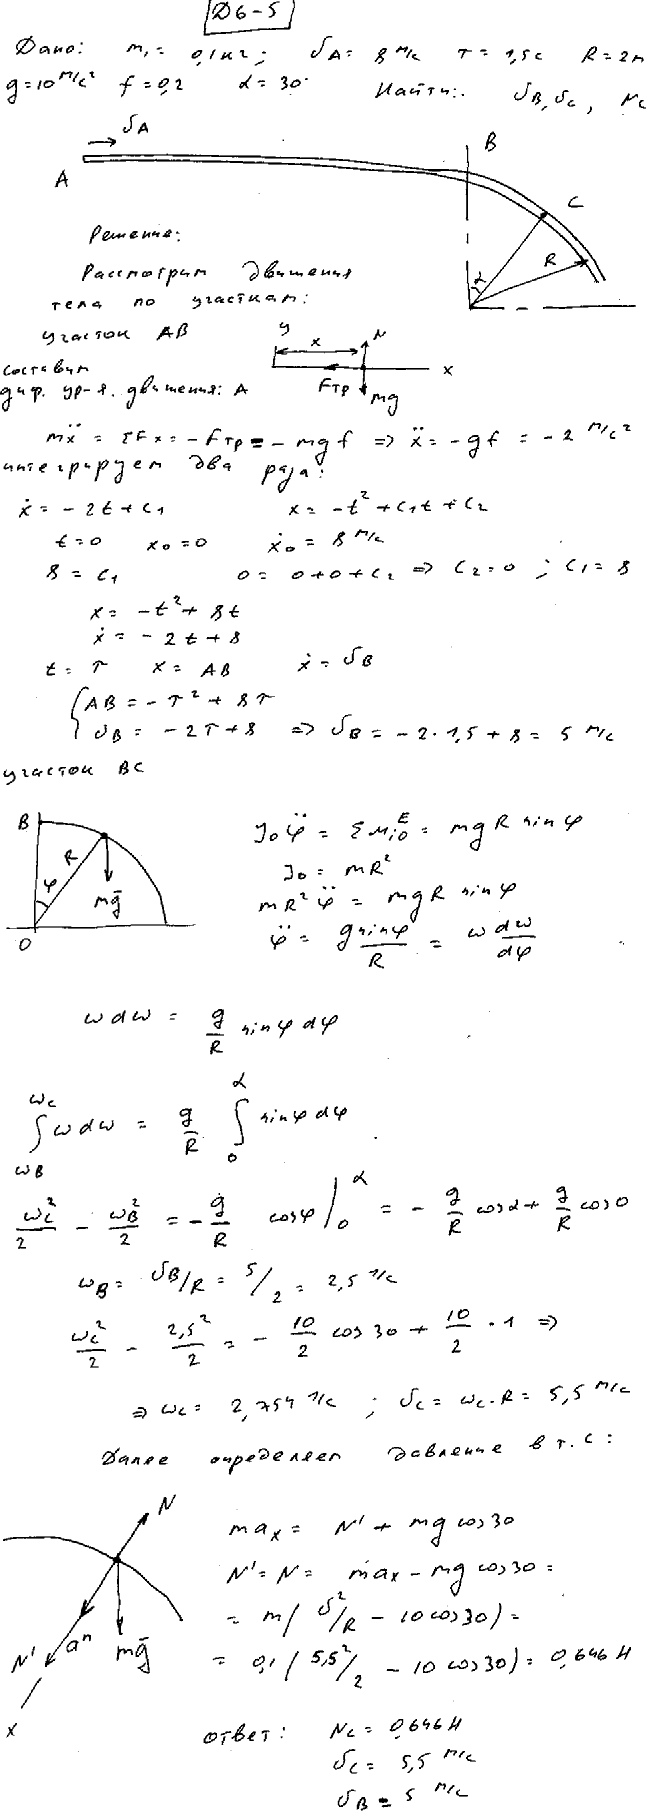 Д6-5
Дано: m₁ = 0,1 кг; υA = 8 м/с T = 1,5 с R = 2 м
g = 10 м/с² f = 0,2 α = 30° Найти: υB, υC, NC
υA
A B C
R α
Решение:
Рассмотрим движения
тела по участкам:
участок AB
y x N x
Fтр mg
составим
диф. ур-я. движения: A
mẍ = ΣFx = -Fтр = -mgf ⇒ ẍ = -gf = -2 м/с²
интегрируем два раза:
ẋ = -2t + C₁ x = -t² + C₁t + C₂
t = 0 x₀ = 0 ẋ₀ = 8 м/с
8 = C₁ 0 = 0 + 0 + C₂ ⇒ C₂ = 0 ; C₁ = 8
x = -t² + 8t
ẋ = -2t + 8
t = T x = AB ẋ = υB
{ AB = -T² + 8T
υB = -2T + 8 ⇒ υB = -2·1,5 + 8 = 5 м/с
участок BC
B R φ mg̅ O
J₀φ̈ = ΣMᵢ₀ᴱ = mgR sinφ
J₀ = mR²
mR²φ̈ = mgR sinφ
φ̈ = g sinφ / R = ω dω/dφ
ω dω = g/R sinφ dφ
∫ωB^ωC ω dω = g/R ∫0^α sinφ dφ
ωC²/2 - ωB²/2 = -g/R cosφ |0^α = -g/R cosα + g/R cos0
ωB = υB/R = 5/2 = 2,5 1/с
ωC²/2 - 2,5²/2 = -10/2 cos30 + 10/2 · 1 ⇒
⇒ ωC = 2,754 1/с ; υC = ωC·R = 5,5 м/с
Далее определяем давление в т. C:
N
N' aⁿ mg̅
x
max = N' + mg cos30
N' = N = max - mg cos30 =
= m(υ²/R - 10 cos30) =
= 0,1(5,5²/2 - 10 cos30) = 0,646 Н
ответ: NC = 0,646 Н
υC = 5,5 м/с
υB = 5 м/с